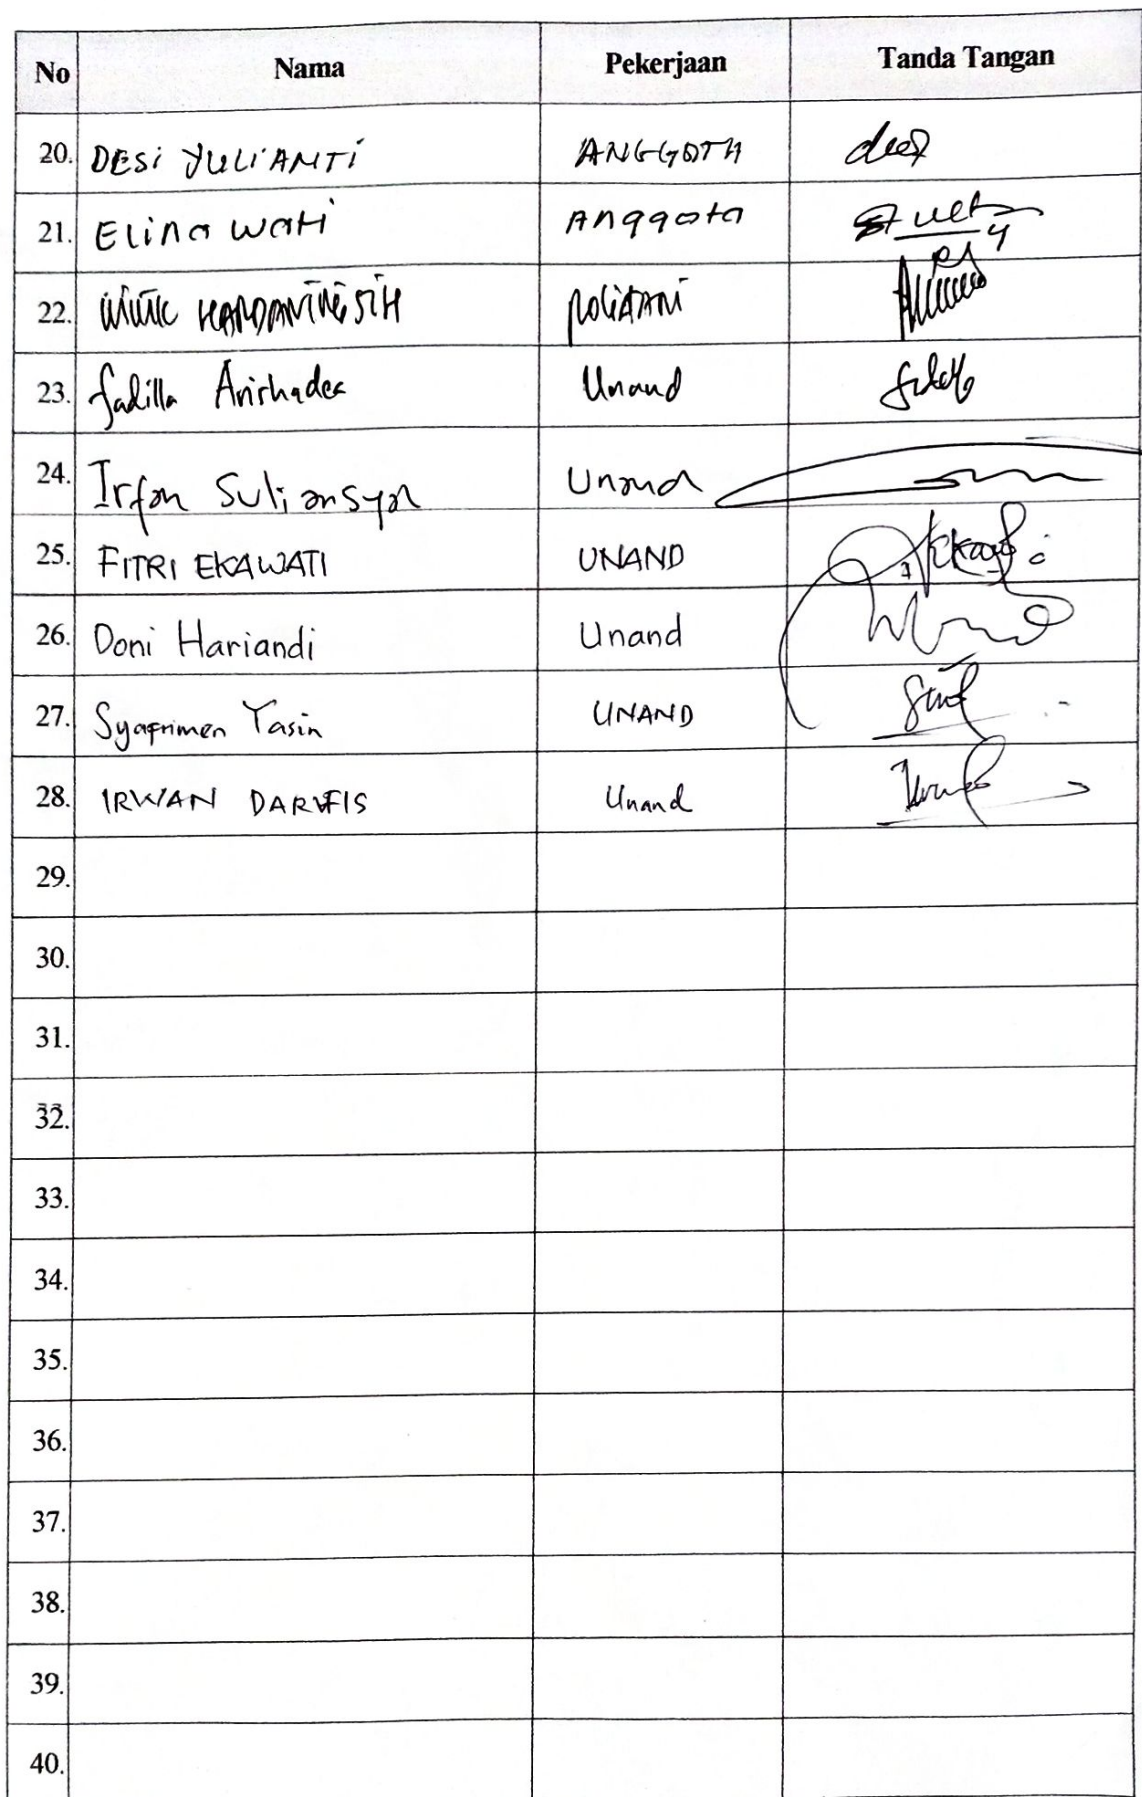 No Nama Pekerjaan Tanda Tangan
20. DESi YULiANTi ANGGOTA
21. Elina wati Anggota
22. POLiTANi
23. fadilla Unand
24. Irfan Suliansyah Unand
25. FITRI EKAWATI UNAND
26. Doni Hariandi Unand
27. Syafrimen Yasin UNAND
28. IRWAN DARVFIS Unand
29.
30.
31.
32.
33.
34.
35.
36.
37.
38.
39.
40.